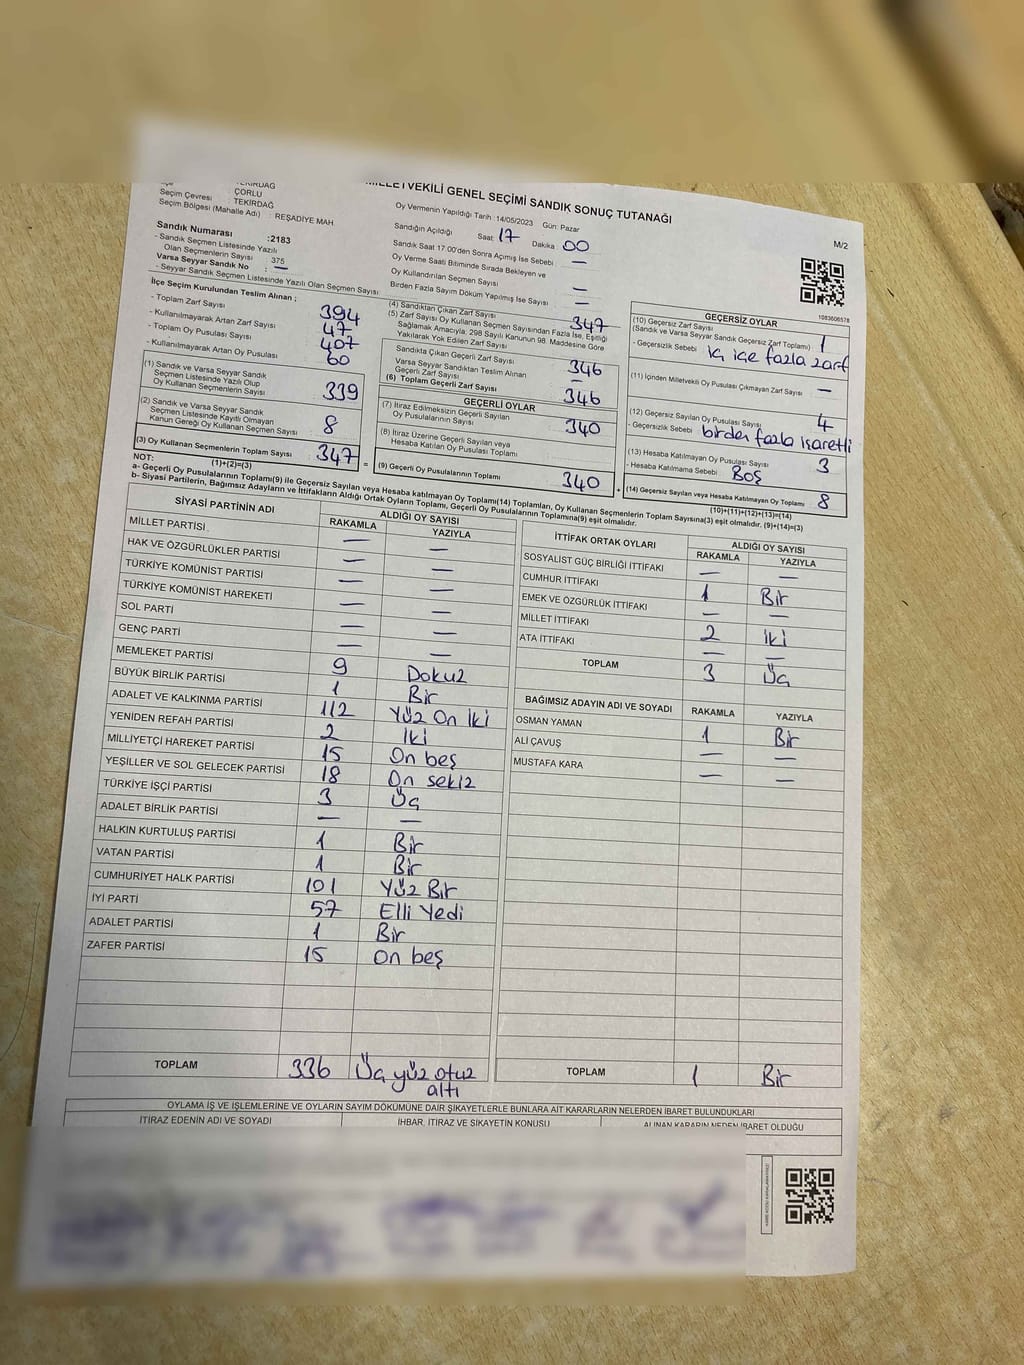 MİLLETVEKİLİ GENEL SEÇİMİ SANDIK SONUÇ TUTANAĞI
TEKİRDAĞ
ÇORLU
Seçim Çevresi : TEKİRDAĞ
Seçim Bölgesi (Mahalle Adı) : REŞADİYE MAH.
Oy Vermenin Yapıldığı Tarih :14/05/2023 Gün: Pazar
M/2
Sandık Numarası :2183
- Sandık Seçmen Listesinde Yazılı
Olan Seçmenlerin Sayısı : 375
Varsa Seyyar Sandık No : —
- Seyyar Sandık Seçmen Listesinde Yazılı Olan Seçmen Sayısı:
Sandığın Açıldığı Saat: 17 Dakika: 00
Sandık Saat 17.00'den Sonra Açılmış İse Sebebi : —
Oy Verme Saati Bitiminde Sırada Bekleyen ve
Oy Kullandırılan Seçmen Sayısı : —
Birden Fazla Sayım Döküm Yapılmış İse Sayısı : —
1083606578
İlçe Seçim Kurulundan Teslim Alınan ;
- Toplam Zarf Sayısı : 394
- Kullanılmayarak Artan Zarf Sayısı : 47
- Toplam Oy Pusulası Sayısı : 407
- Kullanılmayarak Artan Oy Pusulası : 60
(1) Sandık ve Varsa Seyyar Sandık
Seçmen Listesinde Yazılı Olup
Oy Kullanan Seçmenlerin Sayısı : 339
(2) Sandık ve Varsa Seyyar Sandık
Seçmen Listesinde Kayıtlı Olmayan
Kanun Gereği Oy Kullanan Seçmen Sayısı : 8
(3) Oy Kullanan Seçmenlerin Toplam Sayısı : 347
(1)+(2)=(3)
(4) Sandıktan Çıkan Zarf Sayısı : 347
(5) Zarf Sayısı Oy Kullanan Seçmen Sayısından Fazla İse, Eşitliği
Sağlamak Amacıyla, 298 Sayılı Kanunun 98. Maddesine Göre
Yakılarak Yok Edilen Zarf Sayısı :
Sandıkta Çıkan Geçerli Zarf Sayısı : 346
Varsa Seyyar Sandıktan Teslim Alınan
Geçerli Zarf Sayısı : —
(6) Toplam Geçerli Zarf Sayısı : 346
GEÇERLİ OYLAR
(7) İtiraz Edilmeksizin Geçerli Sayılan
Oy Pusulalarının Sayısı : 340
(8) İtiraz Üzerine Geçerli Sayılan veya
Hesaba Katılan Oy Pusulası Toplamı :
= (9) Geçerli Oy Pusulalarının Toplamı : 340 +
GEÇERSİZ OYLAR
(10) Geçersiz Zarf Sayısı
(Sandık ve Varsa Seyyar Sandık Geçersiz Zarf Toplamı) : 1
- Geçersizlik Sebebi : iç içe fazla zarf
(11) İçinden Milletvekili Oy Pusulası Çıkmayan Zarf Sayısı : —
(12) Geçersiz Sayılan Oy Pusulası Sayısı : 4
- Geçersizlik Sebebi : birden fazla işaretli
(13) Hesaba Katılmayan Oy Pusulası Sayısı : 3
- Hesaba Katılmama Sebebi : Boş
(14) Geçersiz Sayılan veya Hesaba Katılmayan Oy Toplamı : 8
(10)+(11)+(12)+(13)=(14)
NOT:
a- Geçerli Oy Pusulalarının Toplamı(9) ile Geçersiz Sayılan veya Hesaba katılmayan Oy Toplamı(14) Toplamları, Oy Kullanan Seçmenlerin Toplam Sayısına(3) eşit olmalıdır. (9)+(14)=(3)
b- Siyasi Partilerin, Bağımsız Adayların ve İttifakların Aldığı Ortak Oyların Toplamı, Geçerli Oy Pusulalarının Toplamına(9) eşit olmalıdır.
SİYASİ PARTİNİN ADI ALDIĞI OY SAYISI
RAKAMLA YAZIYLA
MİLLET PARTİSİ — —
HAK VE ÖZGÜRLÜKLER PARTİSİ — —
TÜRKİYE KOMÜNİST PARTİSİ — —
TÜRKİYE KOMÜNİST HAREKETİ — —
SOL PARTİ — —
GENÇ PARTİ — —
MEMLEKET PARTİSİ 9 Dokuz
BÜYÜK BİRLİK PARTİSİ 1 Bir
ADALET VE KALKINMA PARTİSİ 112 Yüz On İki
YENİDEN REFAH PARTİSİ 2 İki
MİLLİYETÇİ HAREKET PARTİSİ 15 On beş
YEŞİLLER VE SOL GELECEK PARTİSİ 18 On sekiz
TÜRKİYE İŞÇİ PARTİSİ 3 Üç
ADALET BİRLİK PARTİSİ — —
HALKIN KURTULUŞ PARTİSİ 1 Bir
VATAN PARTİSİ 1 Bir
CUMHURİYET HALK PARTİSİ 101 Yüz Bir
İYİ PARTİ 57 Elli Yedi
ADALET PARTİSİ 1 Bir
ZAFER PARTİSİ 15 On beş
TOPLAM 336 Üç yüz otuz altı
İTTİFAK ORTAK OYLARI ALDIĞI OY SAYISI
RAKAMLA YAZIYLA
SOSYALİST GÜÇ BİRLİĞİ İTTİFAKI — —
CUMHUR İTTİFAKI 1 Bir
EMEK VE ÖZGÜRLÜK İTTİFAKI — —
MİLLET İTTİFAKI 2 İki
ATA İTTİFAKI — —
TOPLAM 3 Üç
BAĞIMSIZ ADAYIN ADI VE SOYADI RAKAMLA YAZIYLA
OSMAN YAMAN 1 Bir
ALİ ÇAVUŞ — —
MUSTAFA KARA — —
TOPLAM 1 Bir
OYLAMA İŞ VE İŞLEMLERİNE VE OYLARIN SAYIM DÖKÜMÜNE DAİR ŞİKAYETLERLE BUNLARA AİT KARARLARIN NELERDEN İBARET BULUNDUKLARI
İTİRAZ EDENİN ADI VE SOYADI İHBAR, İTİRAZ VE ŞİKAYETİN KONUSU ALINAN KARARIN NEDEN İBARET OLDUĞU